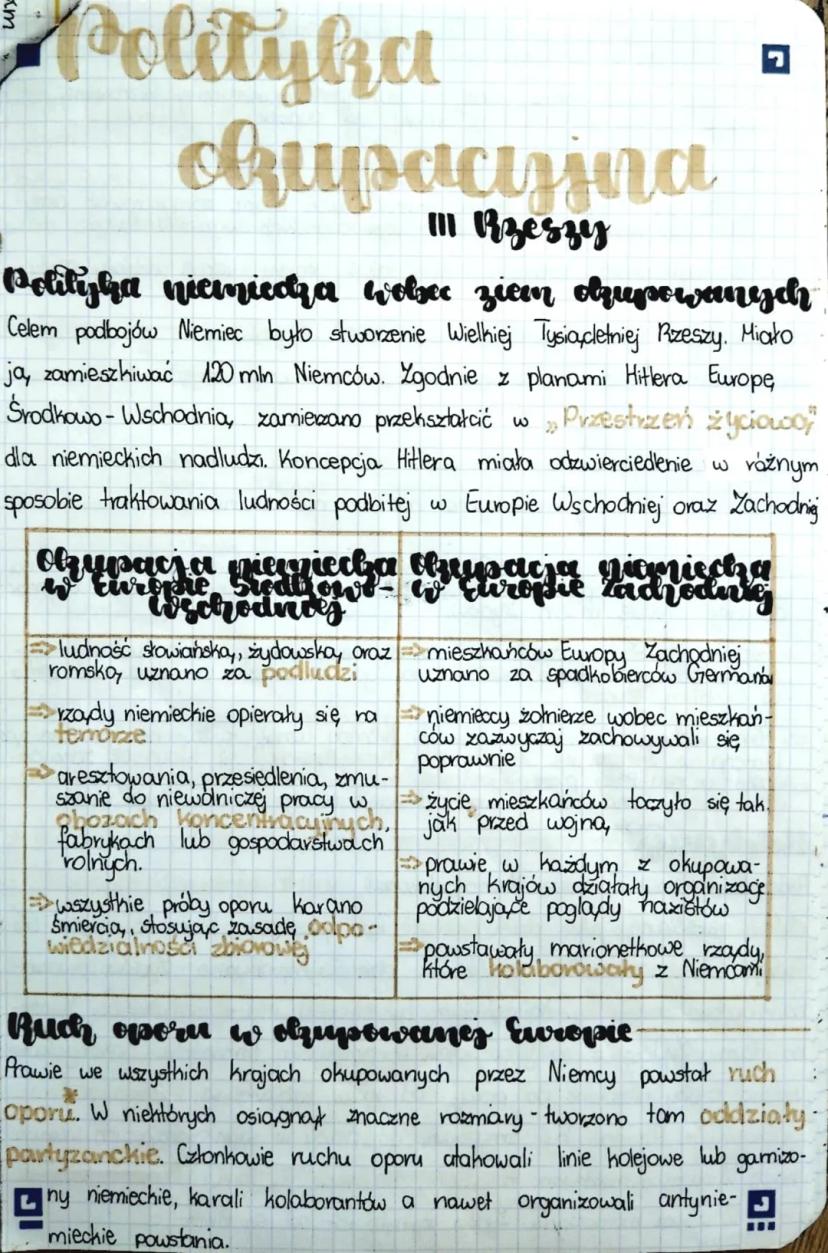 Polityka
okupacyjna
III Rzeszy
Polityka niemiecka wobec ziem okupowanych
Celem podbojów Niemiec było stworzenie Wielkiej Tysiącletniej Rzeszy. Miało
ją zamieszkiwać 120 mln Niemców. Zgodnie z planami Hitlera Europę
Środkowo-Wschodnią zamierzano przekształcić w „Przestrzeń życiową"
dla niemieckich nadludzi. Koncepcja Hitlera miała odzwierciedlenie w różnym
sposobie traktowania ludności podbitej w Europie Wschodniej oraz Zachodniej
Okupacja niemiecka
w Europie Środkowo-
Wschodniej
⇒ludność słowiańską, żydowską oraz
romską uznano za podludzi
⇒rządy niemieckie opierały się na
terrorze
⇒aresztowania, przesiedlenia, zmu-
szanie do niewolniczej pracy w
obozach koncentracyjnych,
fabrykach lub gospodarstwach
rolnych.
⇒wszystkie próby oporu karano
śmiercią, stosując zasadę odpo-
wiedzialności zbiorowej
Okupacja niemiecka
w Europie Zachodniej
⇒mieszkańców Europy Zachodniej
uznano za spadkobierców Germanów
⇒niemieccy żołnierze wobec mieszkań-
ców zazwyczaj zachowywali się
poprawnie
⇒życie mieszkańców toczyło się tak
jak przed wojną
⇒prawie w każdym z okupowa-
nych krajów działały organizacje
podzielające poglądy nazistów
⇒powstawały marionetkowe rządy,
które kolaborowały z Niemcami
Ruch oporu w okupowanej Europie
Prawie we wszystkich krajach okupowanych przez Niemcy powstał ruch
oporu*. W niektórych osiągnął znaczne rozmiary - tworzono tam oddziały
partyzanckie. Członkowie ruchu oporu atakowali linie kolejowe lub garnizo-
ny niemieckie, karali kolaborantów a nawet organizowali antynie-
mieckie powstania.